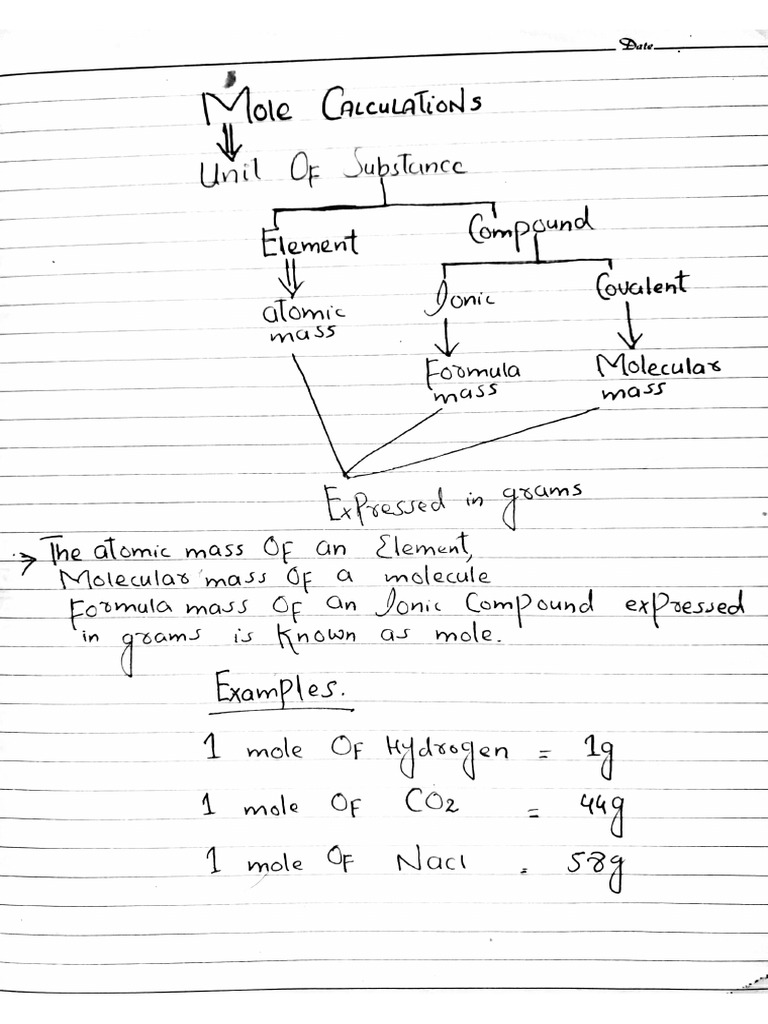 Date
Mole Calculations
Unit Of Substance
Element Compound
Ionic Covalent
atomic
mass
Formula Molecular
mass mass
Expressed in grams
The atomic mass Of an Element,
Molecular mass Of a molecule
Formula mass Of an Ionic Compound expressed
in grams is known as mole.
Examples.
1 mole Of Hydrogen = 1g
1 mole Of CO2 = 44g
1 mole Of Nacl = 58g